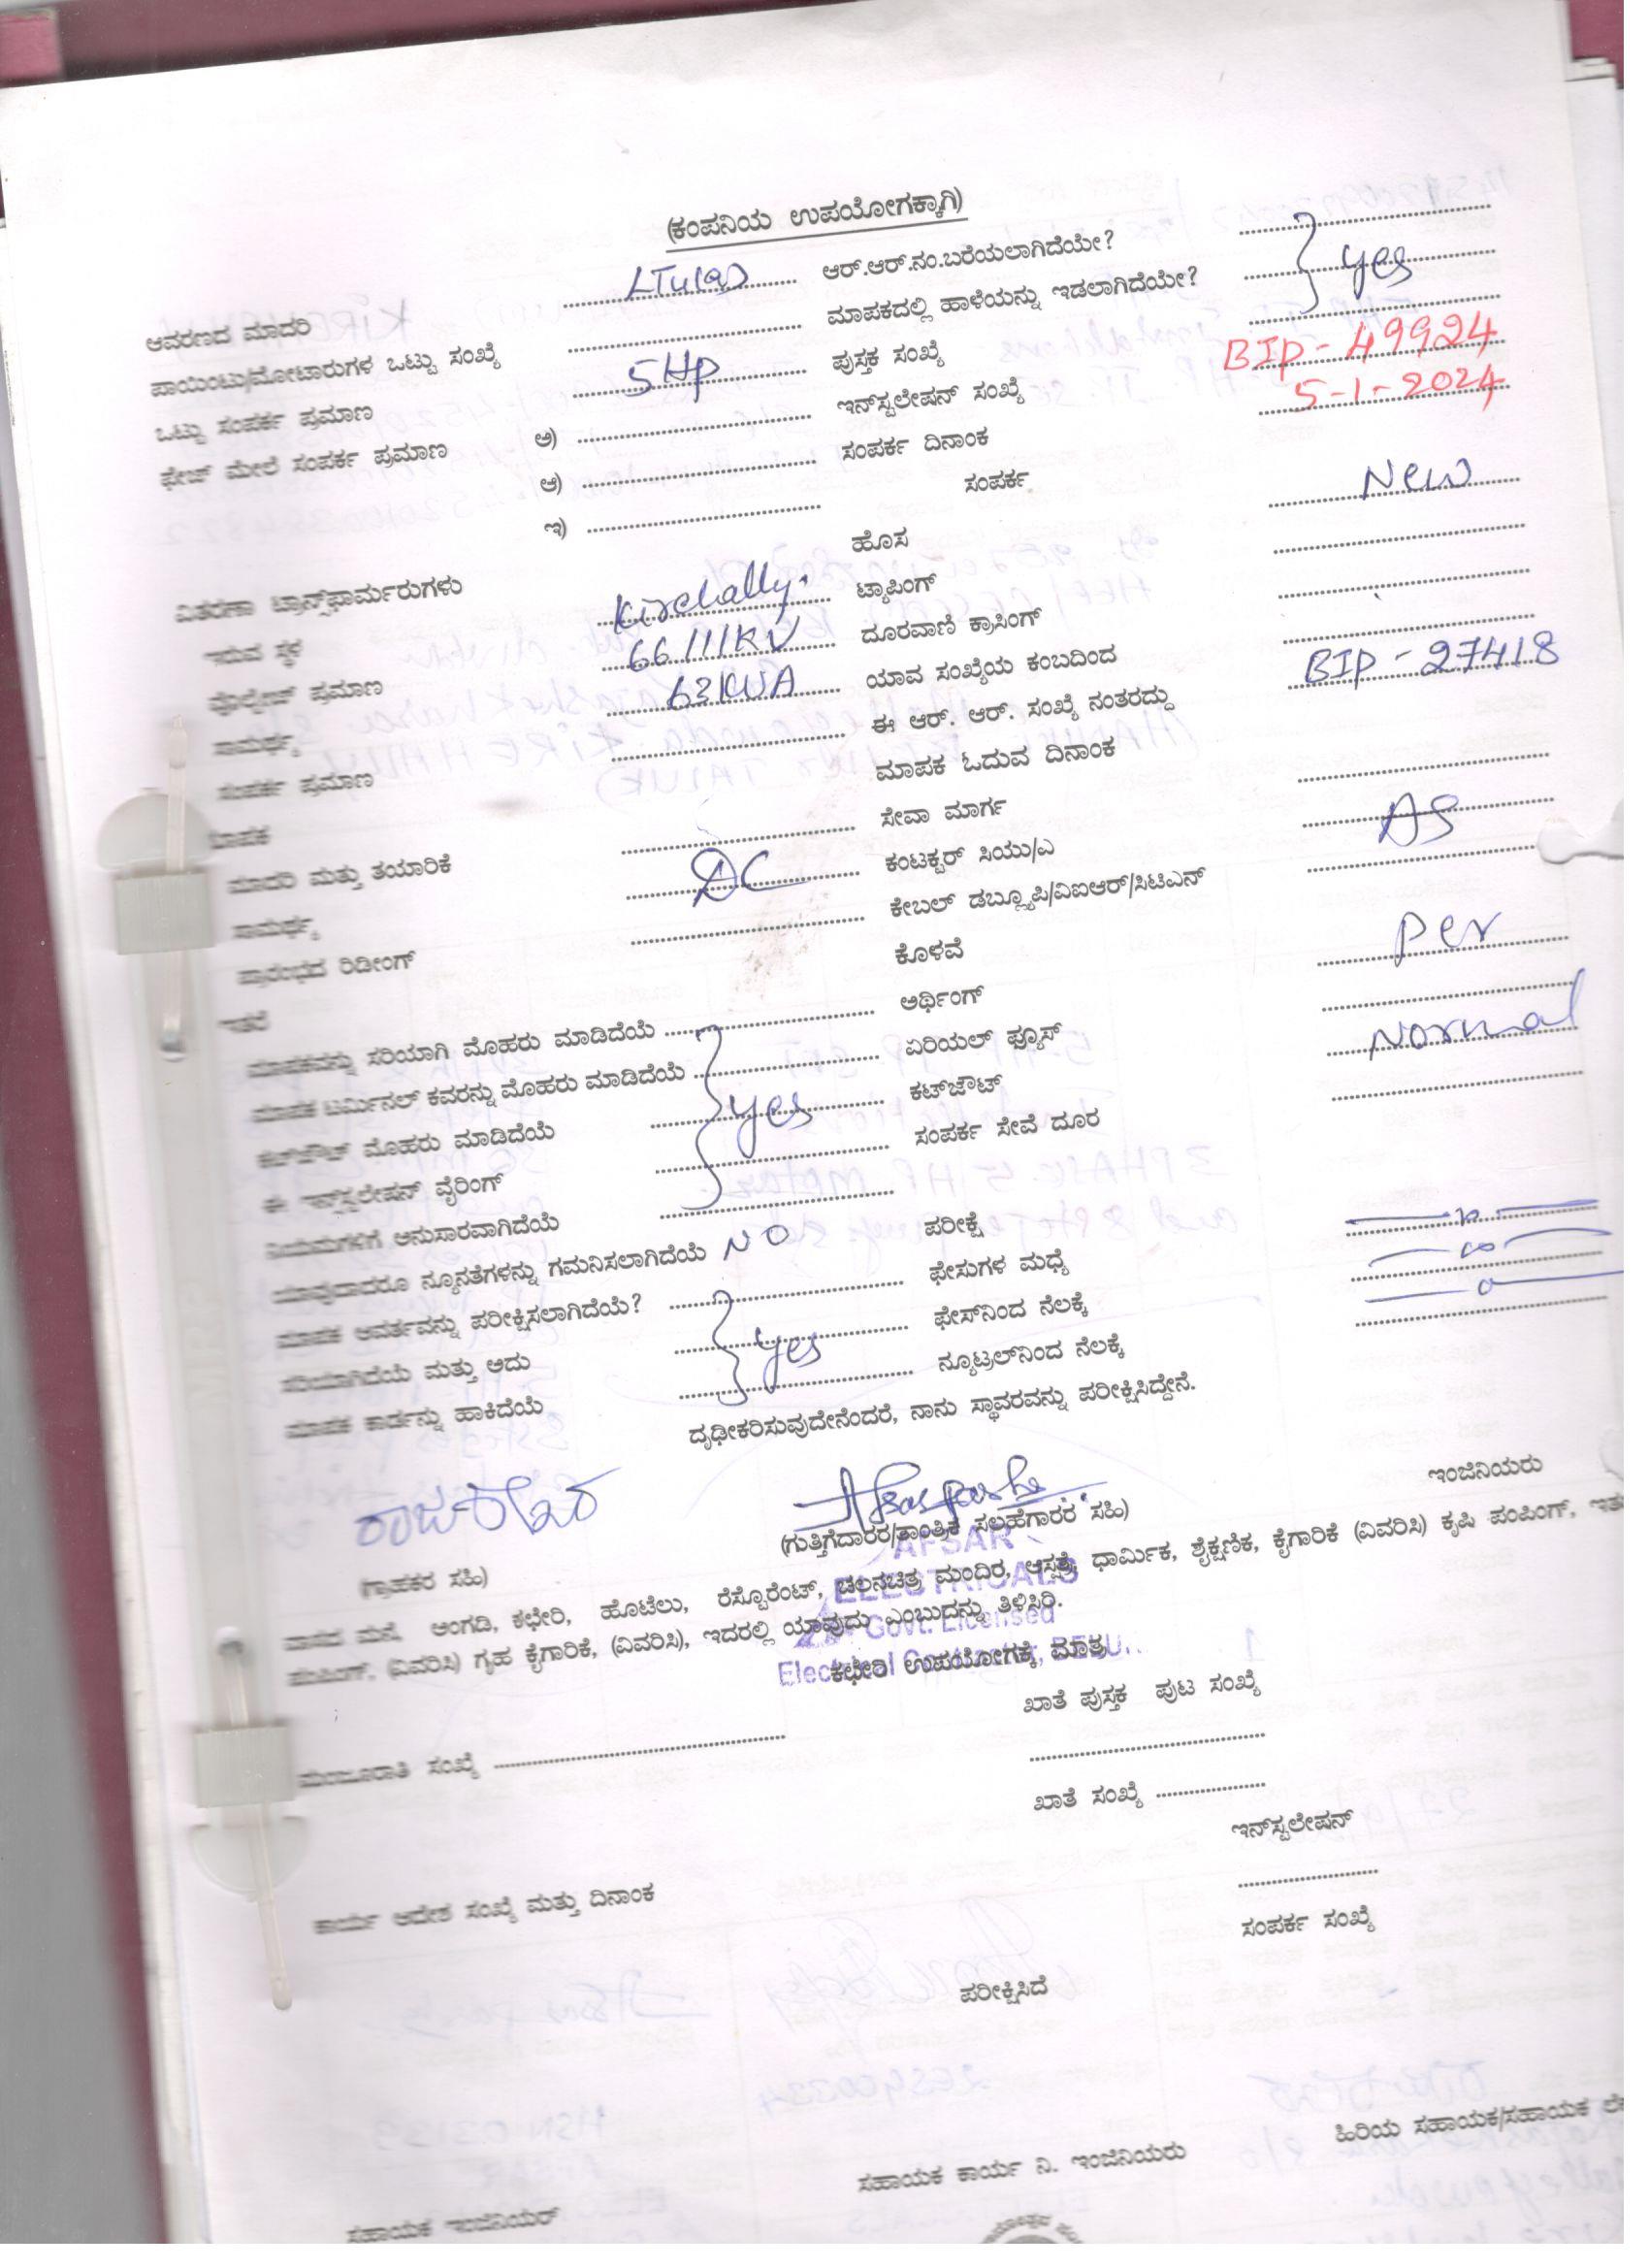 (ಕಂಪನಿಯ ಉಪಯೋಗಕ್ಕಾಗಿ)
ಆವರಣದ ಮಾದರಿ ........ ಆರ್.ಆರ್.ನಂ.ಬರೆಯಲಾಗಿದೆಯೇ?
ಪಾಯಿಂಟು/ಮೋಟಾರುಗಳ ಒಟ್ಟು ಸಂಖ್ಯೆ ........ ಮಾಪಕದಲ್ಲಿ ಹಾಳೆಯನ್ನು ಇಡಲಾಗಿದೆಯೇ? } yes
ಒಟ್ಟು ಸಂಪರ್ಕ ಪ್ರಮಾಣ 5HP ಪುಸ್ತಕ ಸಂಖ್ಯೆ
ಫೇಜ್ ಮೇಲೆ ಸಂಪರ್ಕ ಪ್ರಮಾಣ ಅ) ........ ಇನ್‌ಸ್ಟಲೇಷನ್ ಸಂಖ್ಯೆ BIP - 49924
ಆ) ........ ಸಂಪರ್ಕ ದಿನಾಂಕ 5-1-2024
ಇ) ........ ಸಂಪರ್ಕ
ಹೊಸ New
ವಿತರಣಾ ಟ್ರಾನ್ಸ್‌ಫಾರ್ಮರುಗಳು
ಇರುವ ಸ್ಥಳ Kirehally. ಟ್ಯಾಪಿಂಗ್
ವೊಲ್ಟೇಜ್ ಪ್ರಮಾಣ 66/11KV ದೂರವಾಣಿ ಕ್ರಾಸಿಂಗ್
ಸಾಮರ್ಥ್ಯ 63KVA ಯಾವ ಸಂಖ್ಯೆಯ ಕಂಬದಿಂದ
ಸಂಪರ್ಕ ಪ್ರಮಾಣ ........ ಈ ಆರ್. ಆರ್. ಸಂಖ್ಯೆ ನಂತರದ್ದು BIP - 27418
ಮಾಪಕ ಮಾಪಕ ಓದುವ ದಿನಾಂಕ
ಮಾದರಿ ಮತ್ತು ತಯಾರಿಕೆ ........ ಸೇವಾ ಮಾರ್ಗ
ಸಾಮರ್ಥ್ಯ DC ಕಂಟಕ್ಟರ್ ಸಿಯು/ಎ AS
ಪ್ರಾರಂಭದ ರಿಡೀಂಗ್ ........ ಕೇಬಲ್ ಡಬ್ಲ್ಯೂಪಿ/ವಿಐಆರ್/ಸಿಟಿಎನ್
ಇತರೆ ಕೊಳವೆ per
ಮಾಪಕವನ್ನು ಸರಿಯಾಗಿ ಮೊಹರು ಮಾಡಿದೆಯೆ ........ ಅರ್ಥಿಂಗ್
ಮಾಪಕ ಟರ್ಮಿನಲ್ ಕವರನ್ನು ಮೊಹರು ಮಾಡಿದೆಯೆ ........ ಏರಿಯಲ್ ಫ್ಯೂಸ್ Normal
ಕಟ್‌ಔಟ್ ಮೊಹರು ಮಾಡಿದೆಯೆ } yes ಕಟ್‌ಔಟ್
ಈ ಇನ್ಸ್‌ಸ್ಟಲೇಷನ್ ವೈರಿಂಗ್ ........ ಸಂಪರ್ಕ ಸೇವೆ ದೂರ
ನಿಯಮಗಳಿಗೆ ಅನುಸಾರವಾಗಿದೆಯೆ ........
ಯಾವುದಾದರೂ ನ್ಯೂನತೆಗಳನ್ನು ಗಮನಿಸಲಾಗಿದೆಯೆ NO ಪರೀಕ್ಷೆ
ಮಾಪಕ ಆವರ್ತವನ್ನು ಪರೀಕ್ಷಿಸಲಾಗಿದೆಯೆ? ........ ಫೇಸುಗಳ ಮಧ್ಯೆ
ಸರಿಯಾಗಿದೆಯೆ ಮತ್ತು ಅದು } yes ಫೇಸ್‌ನಿಂದ ನೆಲಕ್ಕೆ
ಮಾಪಕ ಕಾರ್ಡನ್ನು ಹಾಕಿದೆಯೆ ........ ನ್ಯೂಟ್ರಲ್‌ನಿಂದ ನೆಲಕ್ಕೆ
ದೃಢೀಕರಿಸುವುದೇನೆಂದರೆ, ನಾನು ಸ್ಥಾವರವನ್ನು ಪರೀಕ್ಷಿಸಿದ್ದೇನೆ.
ಇಂಜಿನಿಯರು
(ಗ್ರಾಹಕರ ಸಹಿ) (ಗುತ್ತಿಗೆದಾರರ/ತಾಂತ್ರಿಕ ಸಲಹೆಗಾರರ ಸಹಿ)
AFSAR
ELECTRICALS
Govt. Licensed
Electrical
ವಾಸದ ಮನೆ, ಅಂಗಡಿ, ಕಛೇರಿ, ಹೊಟೆಲು, ರೆಸ್ಟೊರೆಂಟ್, ಚಲನಚಿತ್ರ ಮಂದಿರ, ಆಸ್ಪತ್ರೆ, ಧಾರ್ಮಿಕ, ಶೈಕ್ಷಣಿಕ, ಕೈಗಾರಿಕೆ (ವಿವರಿಸಿ) ಕೃಷಿ ಪಂಪಿಂಗ್,
ಪಂಪಿಂಗ್, (ವಿವರಿಸಿ) ಗೃಹ ಕೈಗಾರಿಕೆ, (ವಿವರಿಸಿ), ಇದರಲ್ಲಿ ಯಾವುದು ಎಂಬುದನ್ನು ತಿಳಿಸಿರಿ.
ಕಛೇರಿ ಉಪಯೋಗಕ್ಕೆ ಮಾತ್ರ
ಖಾತೆ ಪುಸ್ತಕ ಪುಟ ಸಂಖ್ಯೆ
ಮಂಜೂರಾತಿ ಸಂಖ್ಯೆ ........
ಖಾತೆ ಸಂಖ್ಯೆ ........
ಇನ್‌ಸ್ಟಲೇಷನ್
ಕಾರ್ಯ ಆದೇಶ ಸಂಖ್ಯೆ ಮತ್ತು ದಿನಾಂಕ
ಸಂಪರ್ಕ ಸಂಖ್ಯೆ
ಪರೀಕ್ಷಿಸಿದೆ
ಹಿರಿಯ ಸಹಾಯಕ/ಸಹಾಯಕ
ಸಹಾಯಕ ಕಾರ್ಯ ನಿ. ಇಂಜಿನಿಯರು
ಸಹಾಯಕ ಇಂಜಿನಿಯರ್